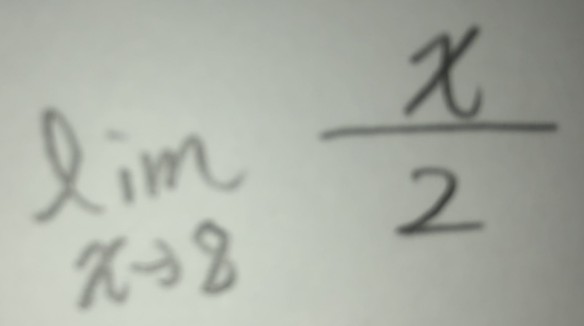 lim x→8 x/2